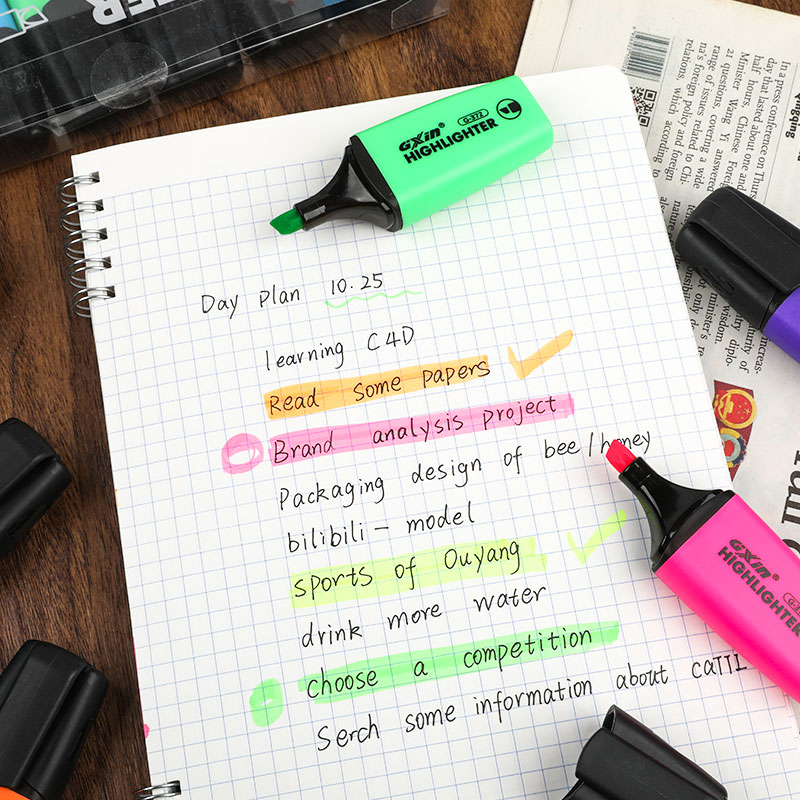 Day Plan 10.25
learning C4D
Read some papers
Brand analysis project
Packaging design of bee/honey
bilibili - model
sports of Ouyang
drink more water
choose a competition
Serch some information about
GXin®
HIGHLIGHTER
G-372
GXin®
HIGHLIGHTER
In a press conference on Thurs-
day that lasted about one and
half hours, Chinese Foreign
Minister Wang Yi answered
21 questions covering a wide
range of issues related to Chi-
na's foreign policy and foreign
relations, which
according to